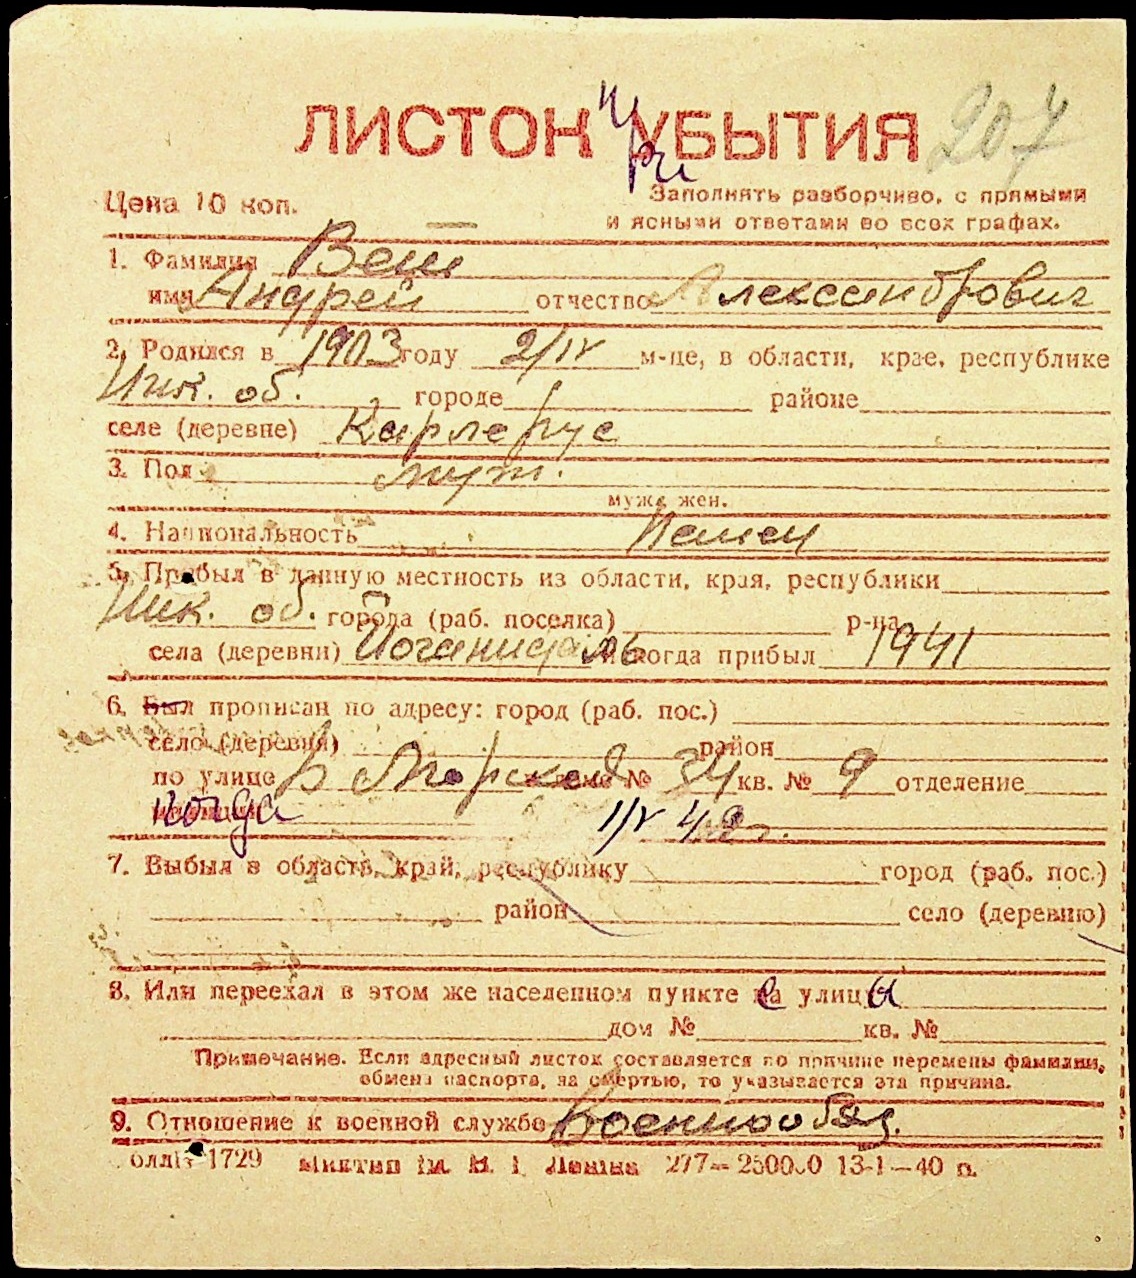 ЛИСТОК УБЫТИЯ 207
при
Цена 10 коп.
Заполнять разборчиво, с прямыми
и ясными ответами во всех графах.
1. Фамилия Веш
имя Андрей отчество Александрович
2. Родился в 1903 году 2/IV м-це, в области, крае, республике
Ник. об. городе районе
селе (деревне) Карлсрус
3. Пол муж.
муж. жен.
4. Национальность Немец
5. Прибыл в данную местность из области, края, республики
Ник. об. города (раб. поселка) р-на
села (деревни) Иогансталь и когда прибыл 1941
6. Был прописан по адресу: город (раб. пос.)
село (деревня) район
по улице Б Морской доме № 34 кв. № 9 отделение
когда 1/V 42 г.
7. Выбыл в область, край, республику город (раб. пос.)
район село (деревню)
8. Или переехал в этом же населенном пункте с улицы
дом № кв. №
Примечание. Если адресный листок составляется по причине перемены фамилии,
обмена паспорта, за смертью, то указывается эта причина.
9. Отношение к военной службе Военнообяз.
1729 277— 13-1—40 п.